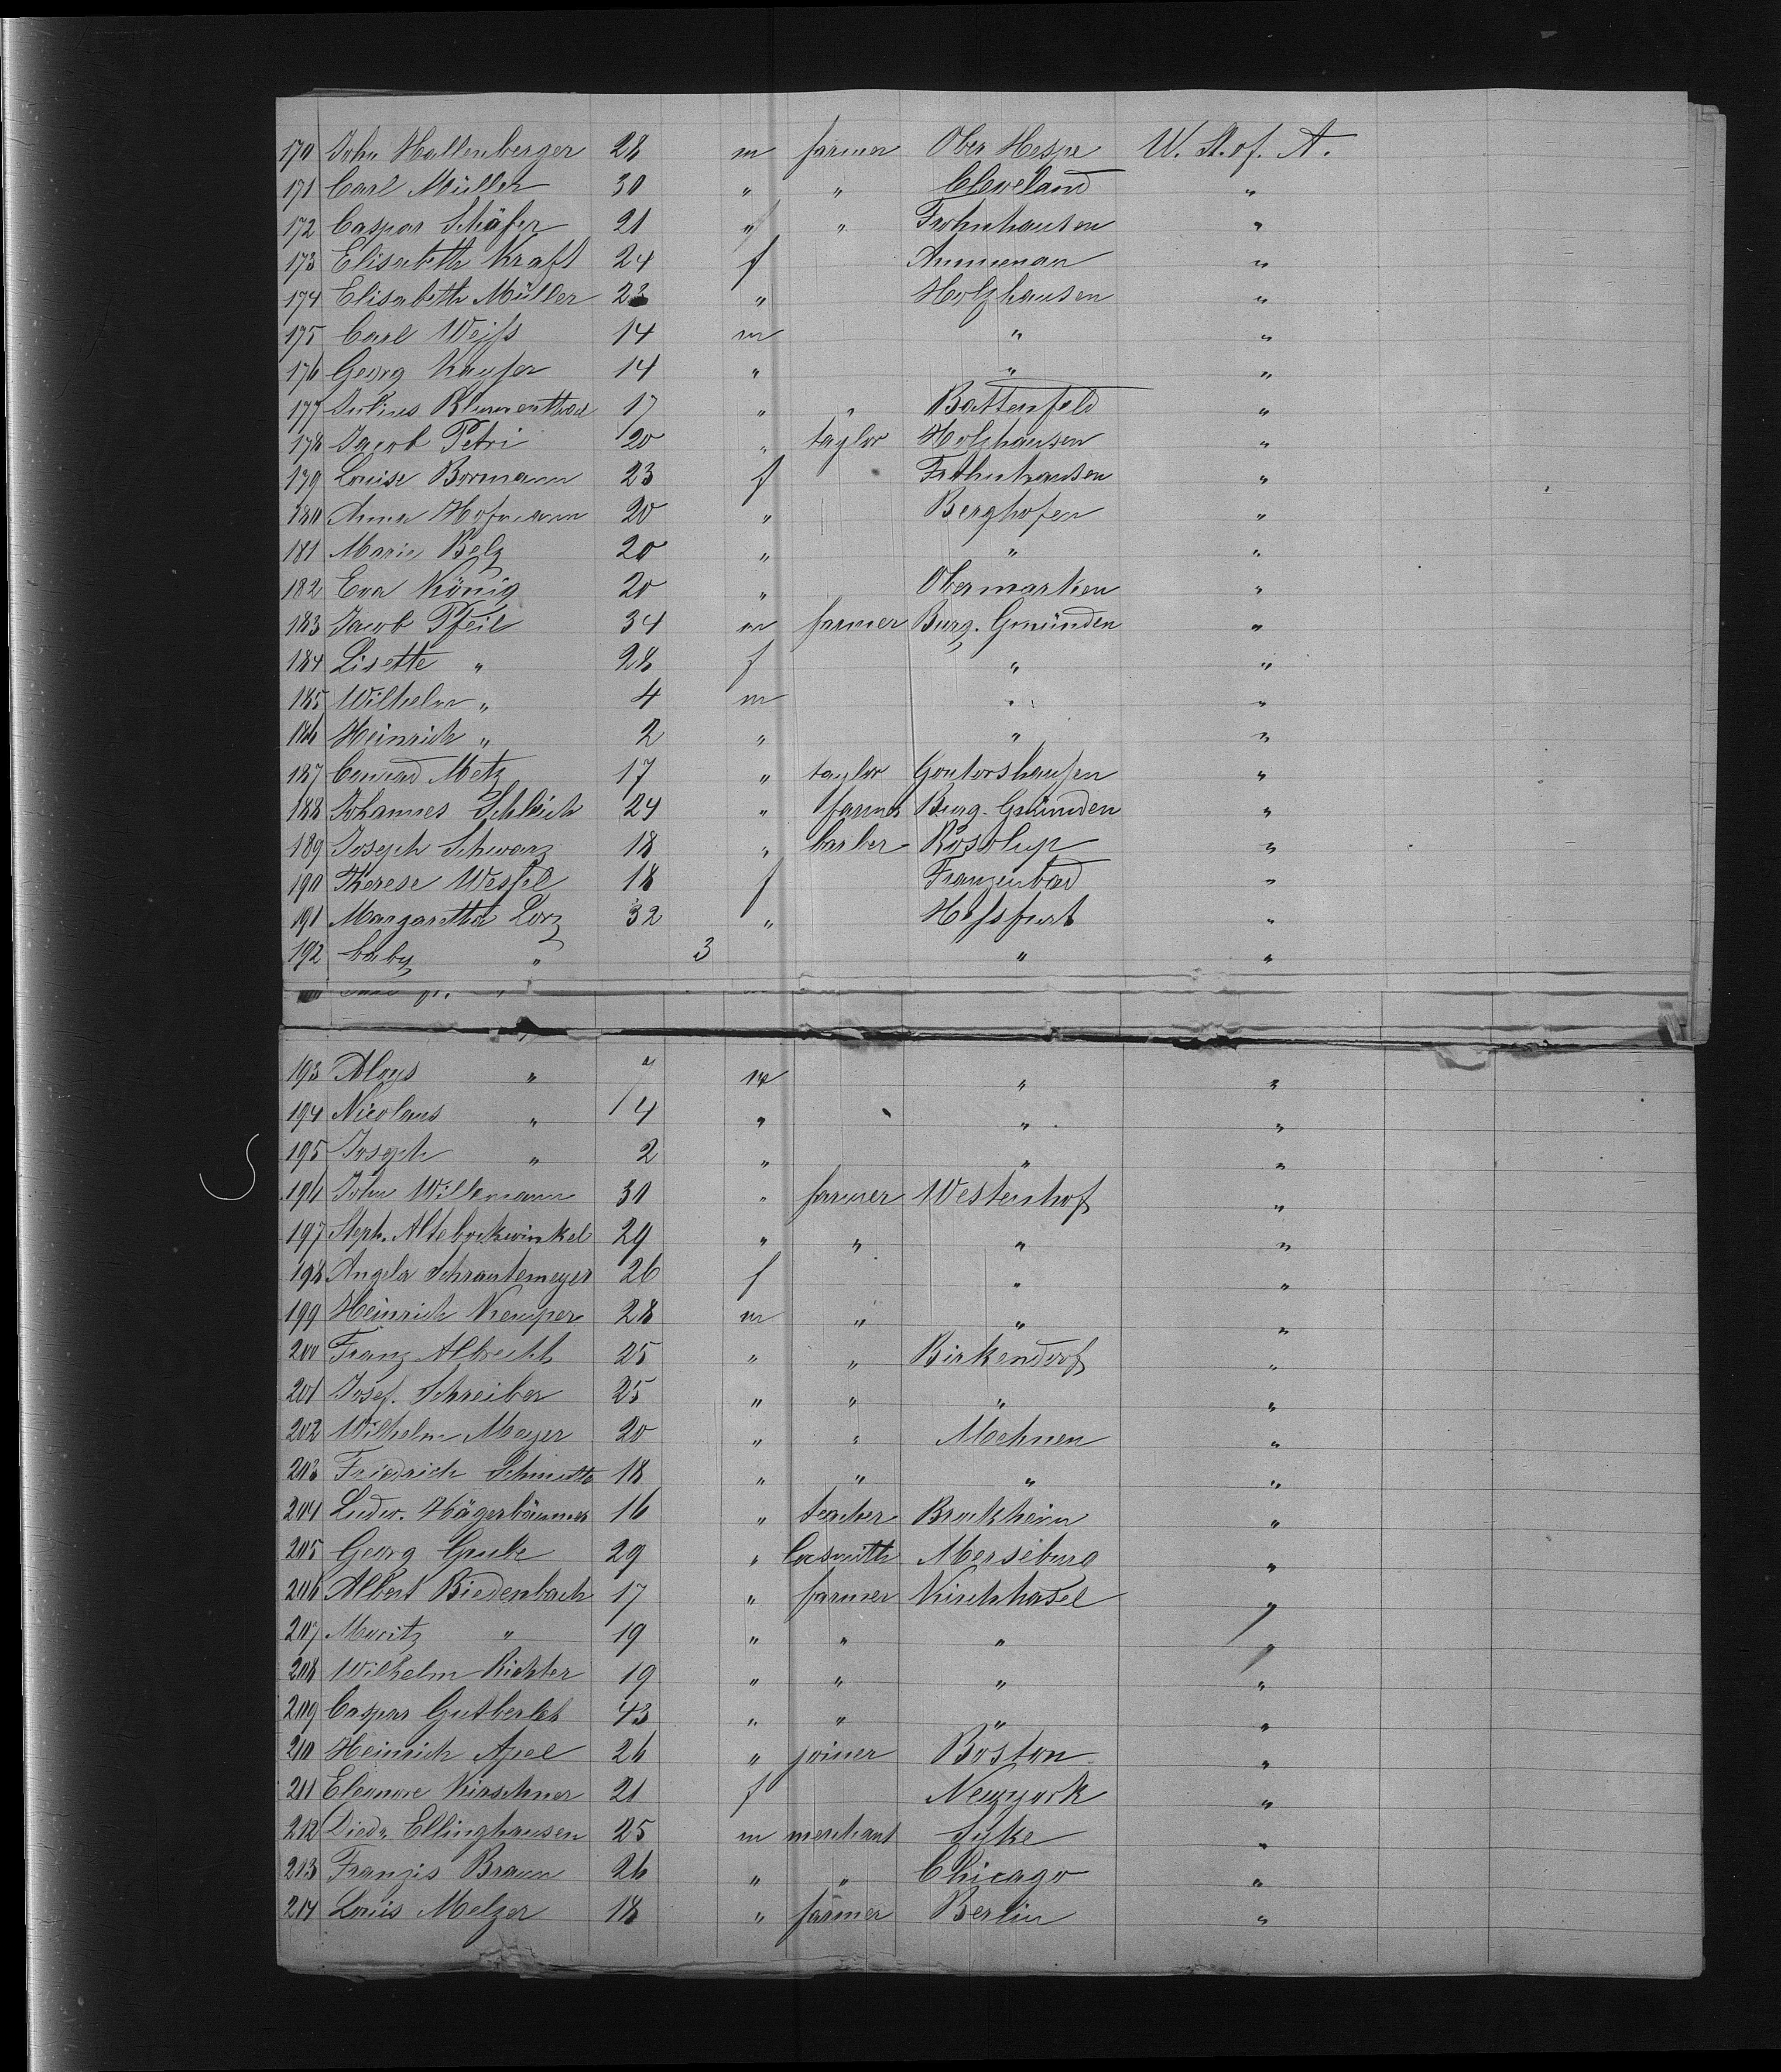 170 John Hallenberger 28 m farmer Ober Hespe U. St. of. A.
171 Carl Müller 30 " " Cleveland "
172 Caspar Schäfer 21 " " Frohnhausen "
173 Elisabeth Kraft 24 f "
174 Elisabeth Müller 23 " Holzhausen "
175 Carl Weiss 14 m " "
176 Georg Kayser 14 " " "
177 Julius Blumenthal 17 " " Battenfeld "
178 Jacob Petri 20 " taylor Holzhausen "
179 Louise Bormann 23 f Frohnhausen "
180 Anna Hofmann 20 " Berghofen "
181 Marie Belz 20 " " "
182 Eva König 20 " "
183 Jacob Pfeil 34 m farmer Burg. Gmünden "
184 Lisette " 28 f " "
185 Wilhelm " 4 m " "
186 Heinrich " 2 " " "
187 Conrad Metz 17 " taylor Gontershausen "
188 Johannes Schleich 24 " farmer Burg. Gmünden "
189 Joseph Schwarz 18 " barber "
190 Therese Wessel 18 f Franzenbad "
191 Margaretha Lorz 32 " "
192 baby " 3 " "
193 Aloys " 7 m " "
194 Nicolaus " 4 " " "
195 Joseph " 2 " " "
196 John Willemann 30 " farmer Westenhof "
197 Steph. Altebockwinkel 29 " " " "
198 Angela Schrautemeyer 26 f " "
199 Heinrich Kemper 28 m " " "
200 Franz Albrecht 25 " " Birkendorf "
201 Josef. Schreiber 25 " " " "
202 Wilhelm Meyer 20 " " Mehnen "
203 Friedrich Schmidt 18 " " " "
204 Ludw. Hägerbäumer 16 " teacher "
205 Georg 29 " locsmith Merseburg "
206 Albert Biedenbach 17 " farmer Kirchhasel "
207 Moritz " 19 " " " "
208 Wilhelm Richter 19 " " " "
209 Caspar Gutberlet 43 " " " "
210 Heinrich Apel 26 " joiner Boston "
211 Eleonore Kirschner 21 f Newyork "
212 Diedr. Ellinghausen 25 m merchant Syke "
213 Franzis Braun 26 " " Chicago "
214 Louis Melzer 18 " farmer Berlin "